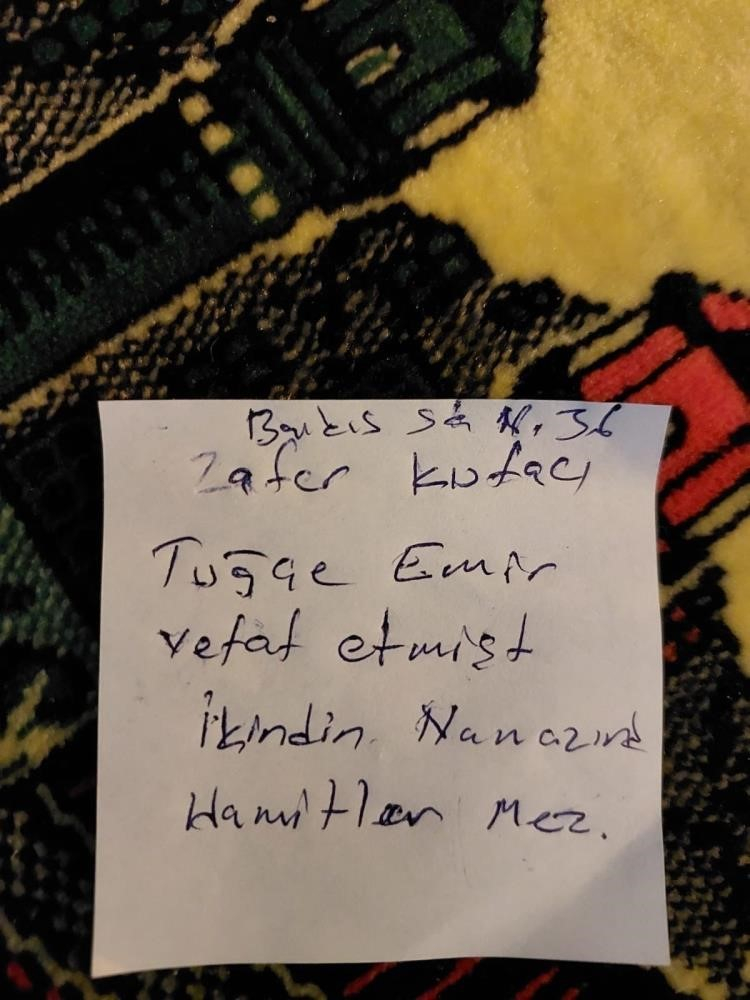 Barkıs Sk N. 36
Zafer Kufacı
Tuğçe Emir
vefat etmişt
İkindin Namazınd
Hamitler Mez.